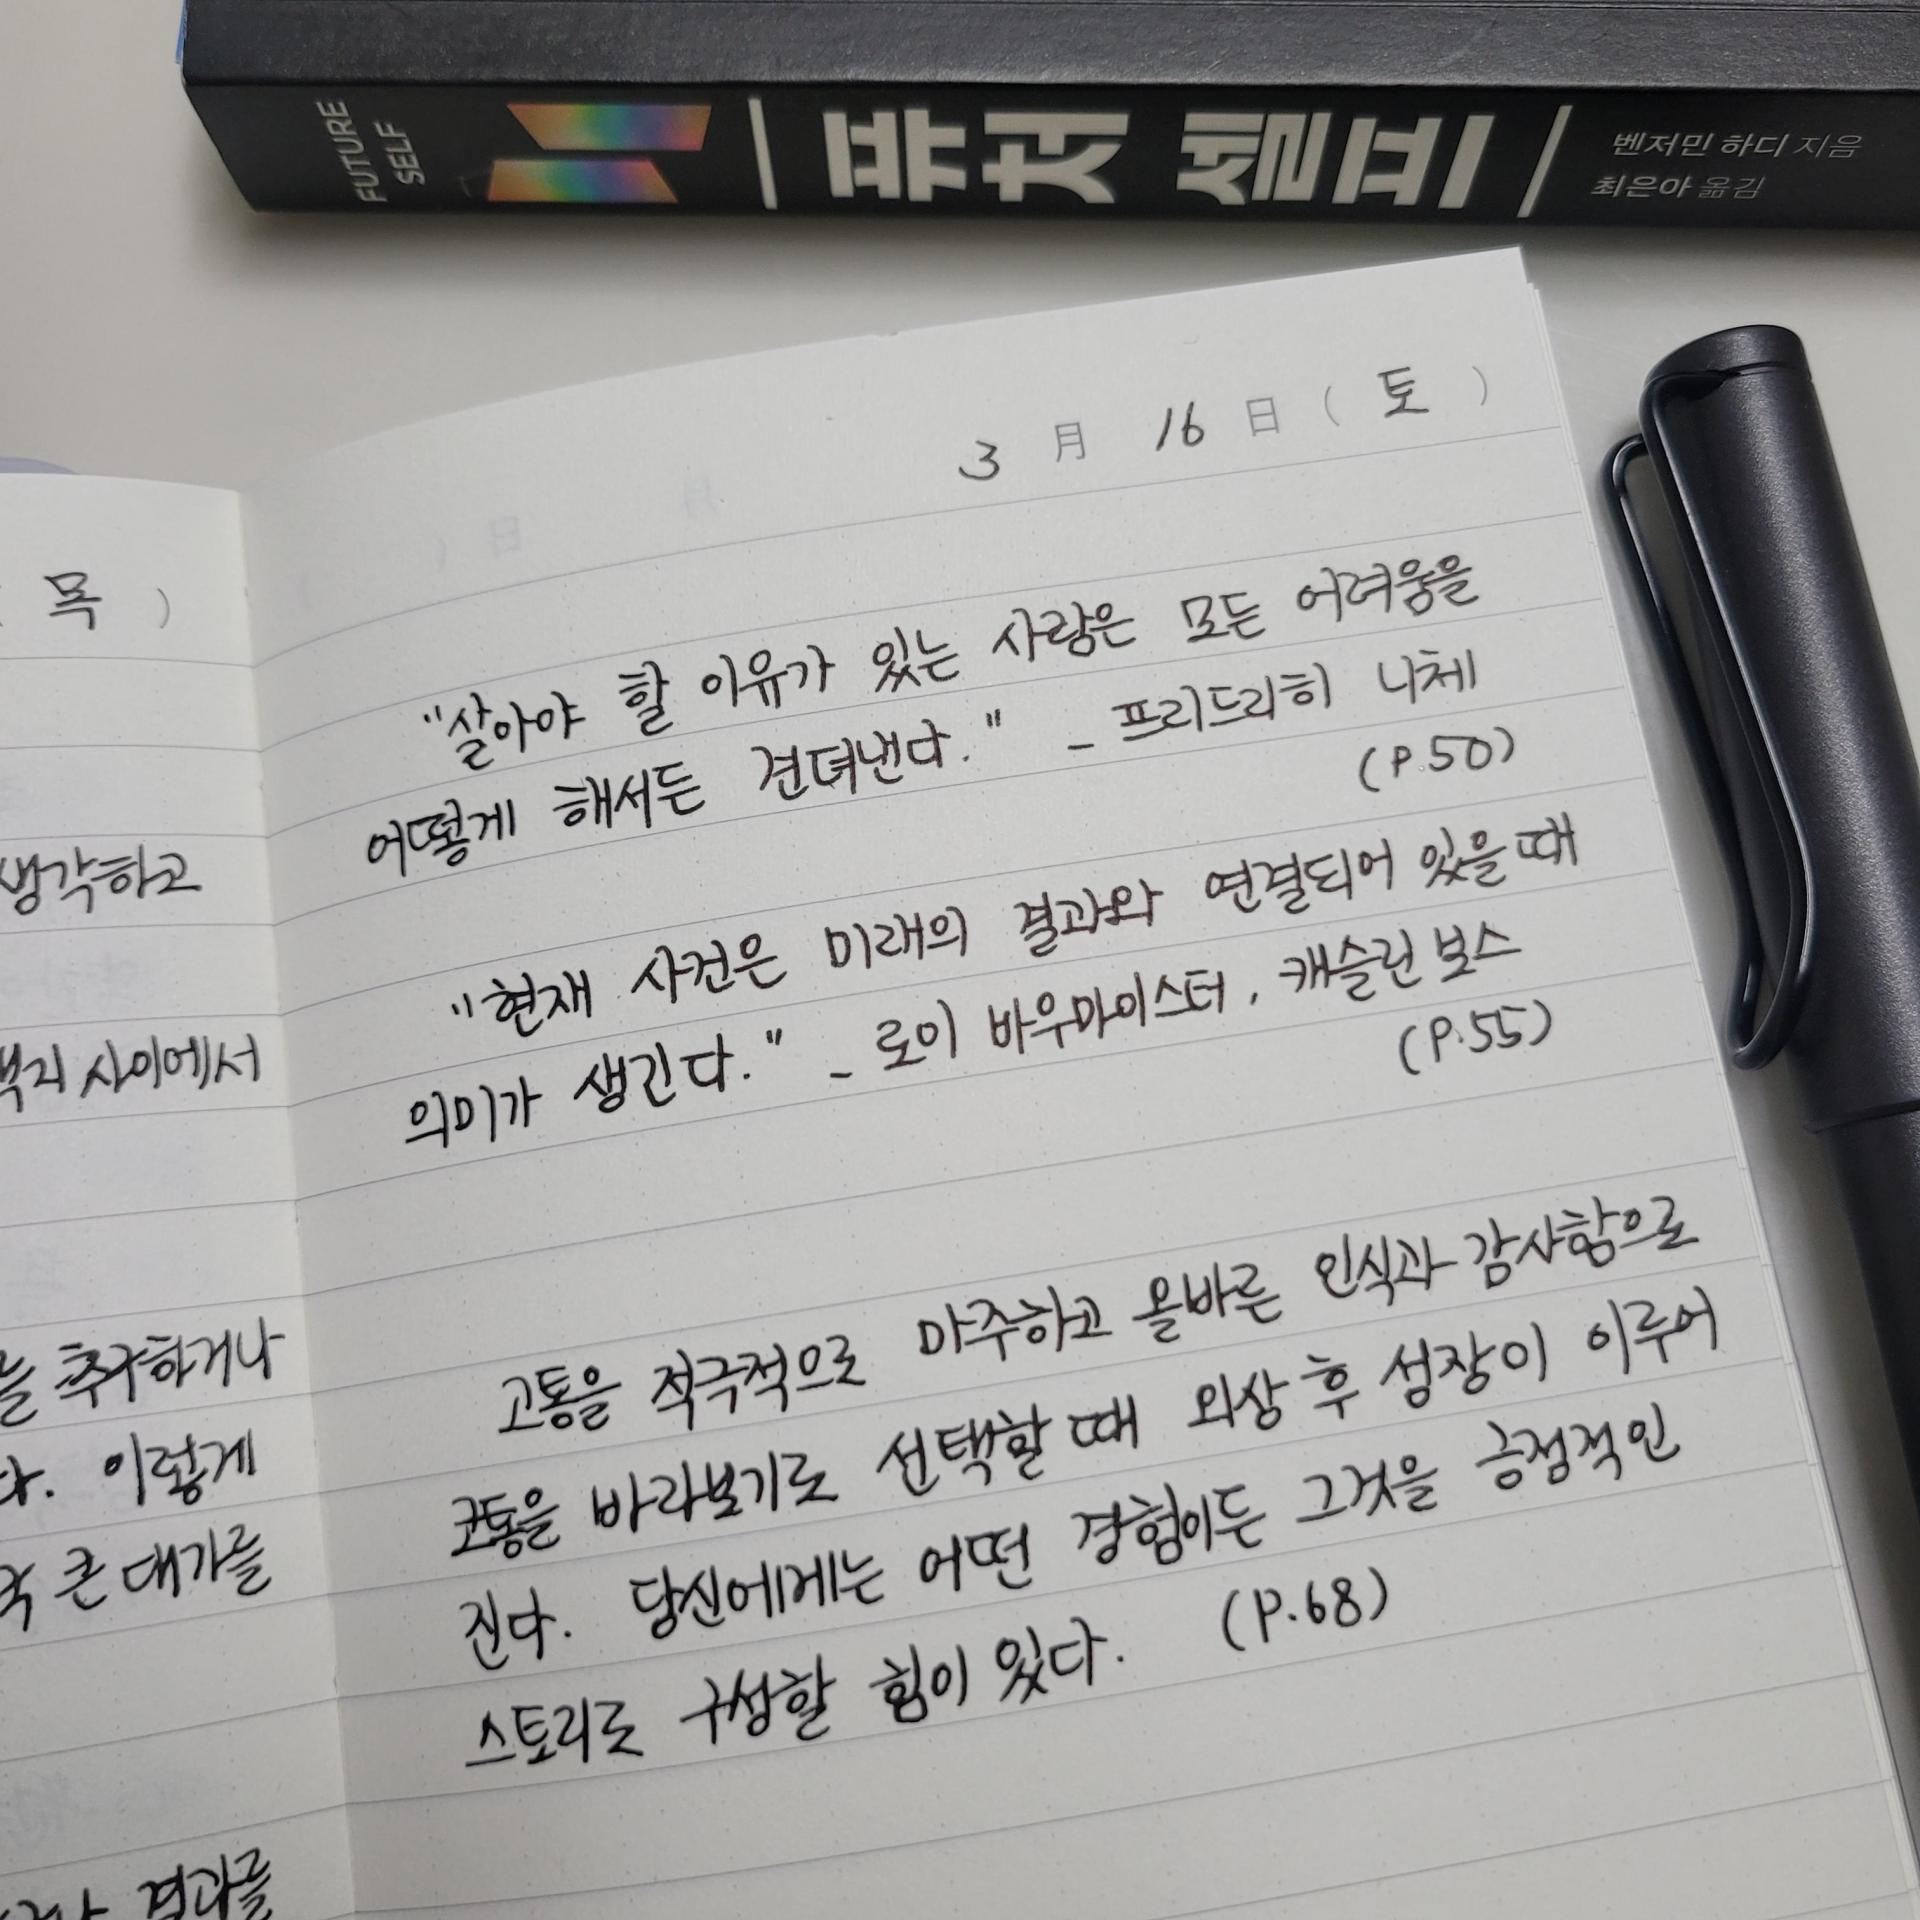 FUTURE
SELF
퓨처 셀프
벤저민 하디 지음
최은아 옮김
목 )
생각하고
사이에서
를 추구하거나
다. 이렇게
큰 대가를
결과를
3 月 16 日 ( 토 )
"살아야 할 이유가 있는 사람은 모든 어려움을
어떻게 해서든 견뎌낸다." - 프리드리히 니체
(P.50)
"현재 사건은 미래의 결과와 연결되어 있을 때
의미가 생긴다." - 로이 바우마이스터, 캐슬린 보스
(P.55)
고통을 적극적으로 마주하고 올바른 인식과 감사함으로
고통을 바라보기로 선택할 때 외상 후 성장이 이루어
진다. 당신에게는 어떤 경험이든 그것을 긍정적인
스토리로 구성할 힘이 있다. (P.68)